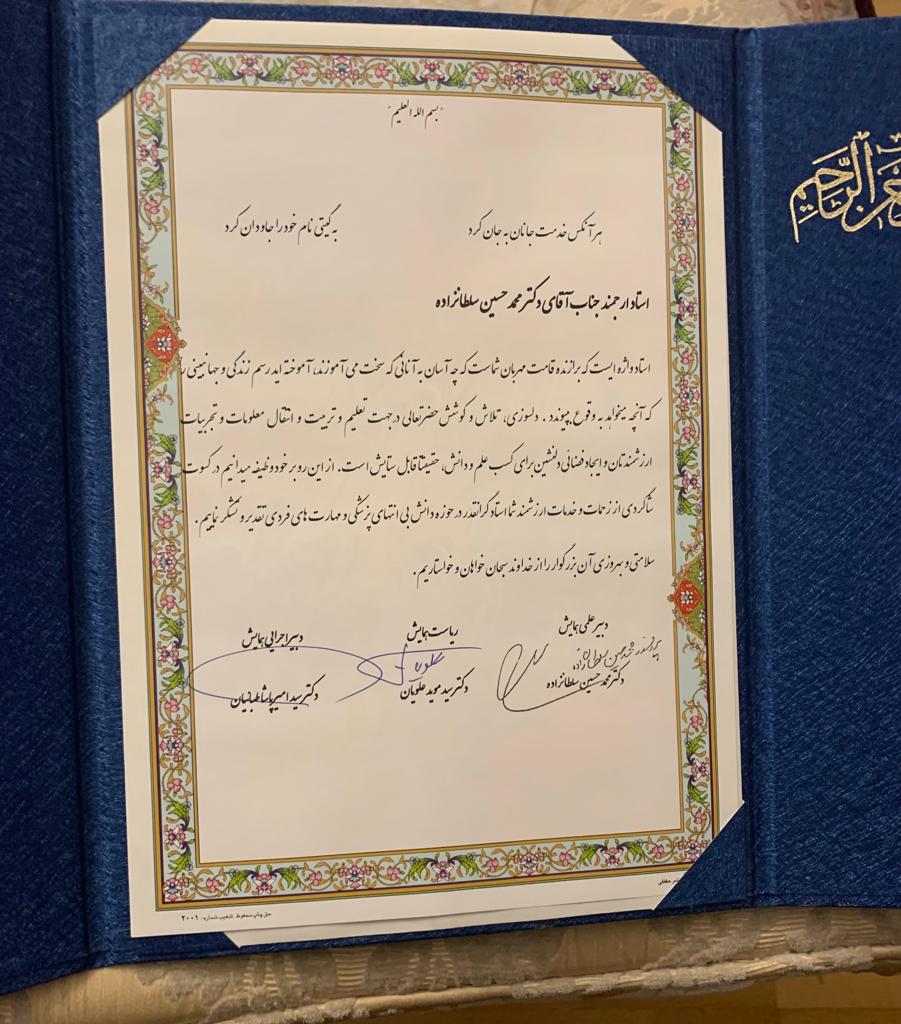 "بسم الله العلیم"
هر آنکس خدمت جانان به جان کرد به گیتی نام خود را جاودان کرد
استاد ارجمند جناب آقای دکتر محمد حسین سلطانزاده
استاد واژه ایست که برازنده قامت مهربان شماست که چه آسان به آنانی که سخت می آموزند، آموخته اید رسم زندگی و جهانبینی را
که آنچه میخواهد به وقوع بپیوندد . دلسوزی، تلاش و کوشش حضرتعالی در جهت تعلیم و تربیت و انتقال معلومات و تجربیات
ارزشمندتان و ایجاد فضائی دلنشین برای کسب علم و دانش، حقیقتا قابل ستایش است. از این رو بر خود وظیفه میدانیم در کسوت
شاگردی از زحمات و خدمات ارزشمند شما استاد گرانقدر در حوزه دانش بی انتهای پزشکی و مهارت های فردی تقدیر و تشکر نماییم.
سلامتی و بهروزی آن بزرگوار را از خداوند سبحان خواهان و خواستاریم.
دبیر علمی همایش ریاست همایش دبیر اجرایی همایش
پروفسور محمد حسین سلطانزاده علویان
دکتر محمد حسین سلطانزاده دکتر سید موید علویان دکتر سید امیرپاشا طبائیان
حق چاپ محفوظ. تذهیب شماره : ۲۰۰۱
الرحیم